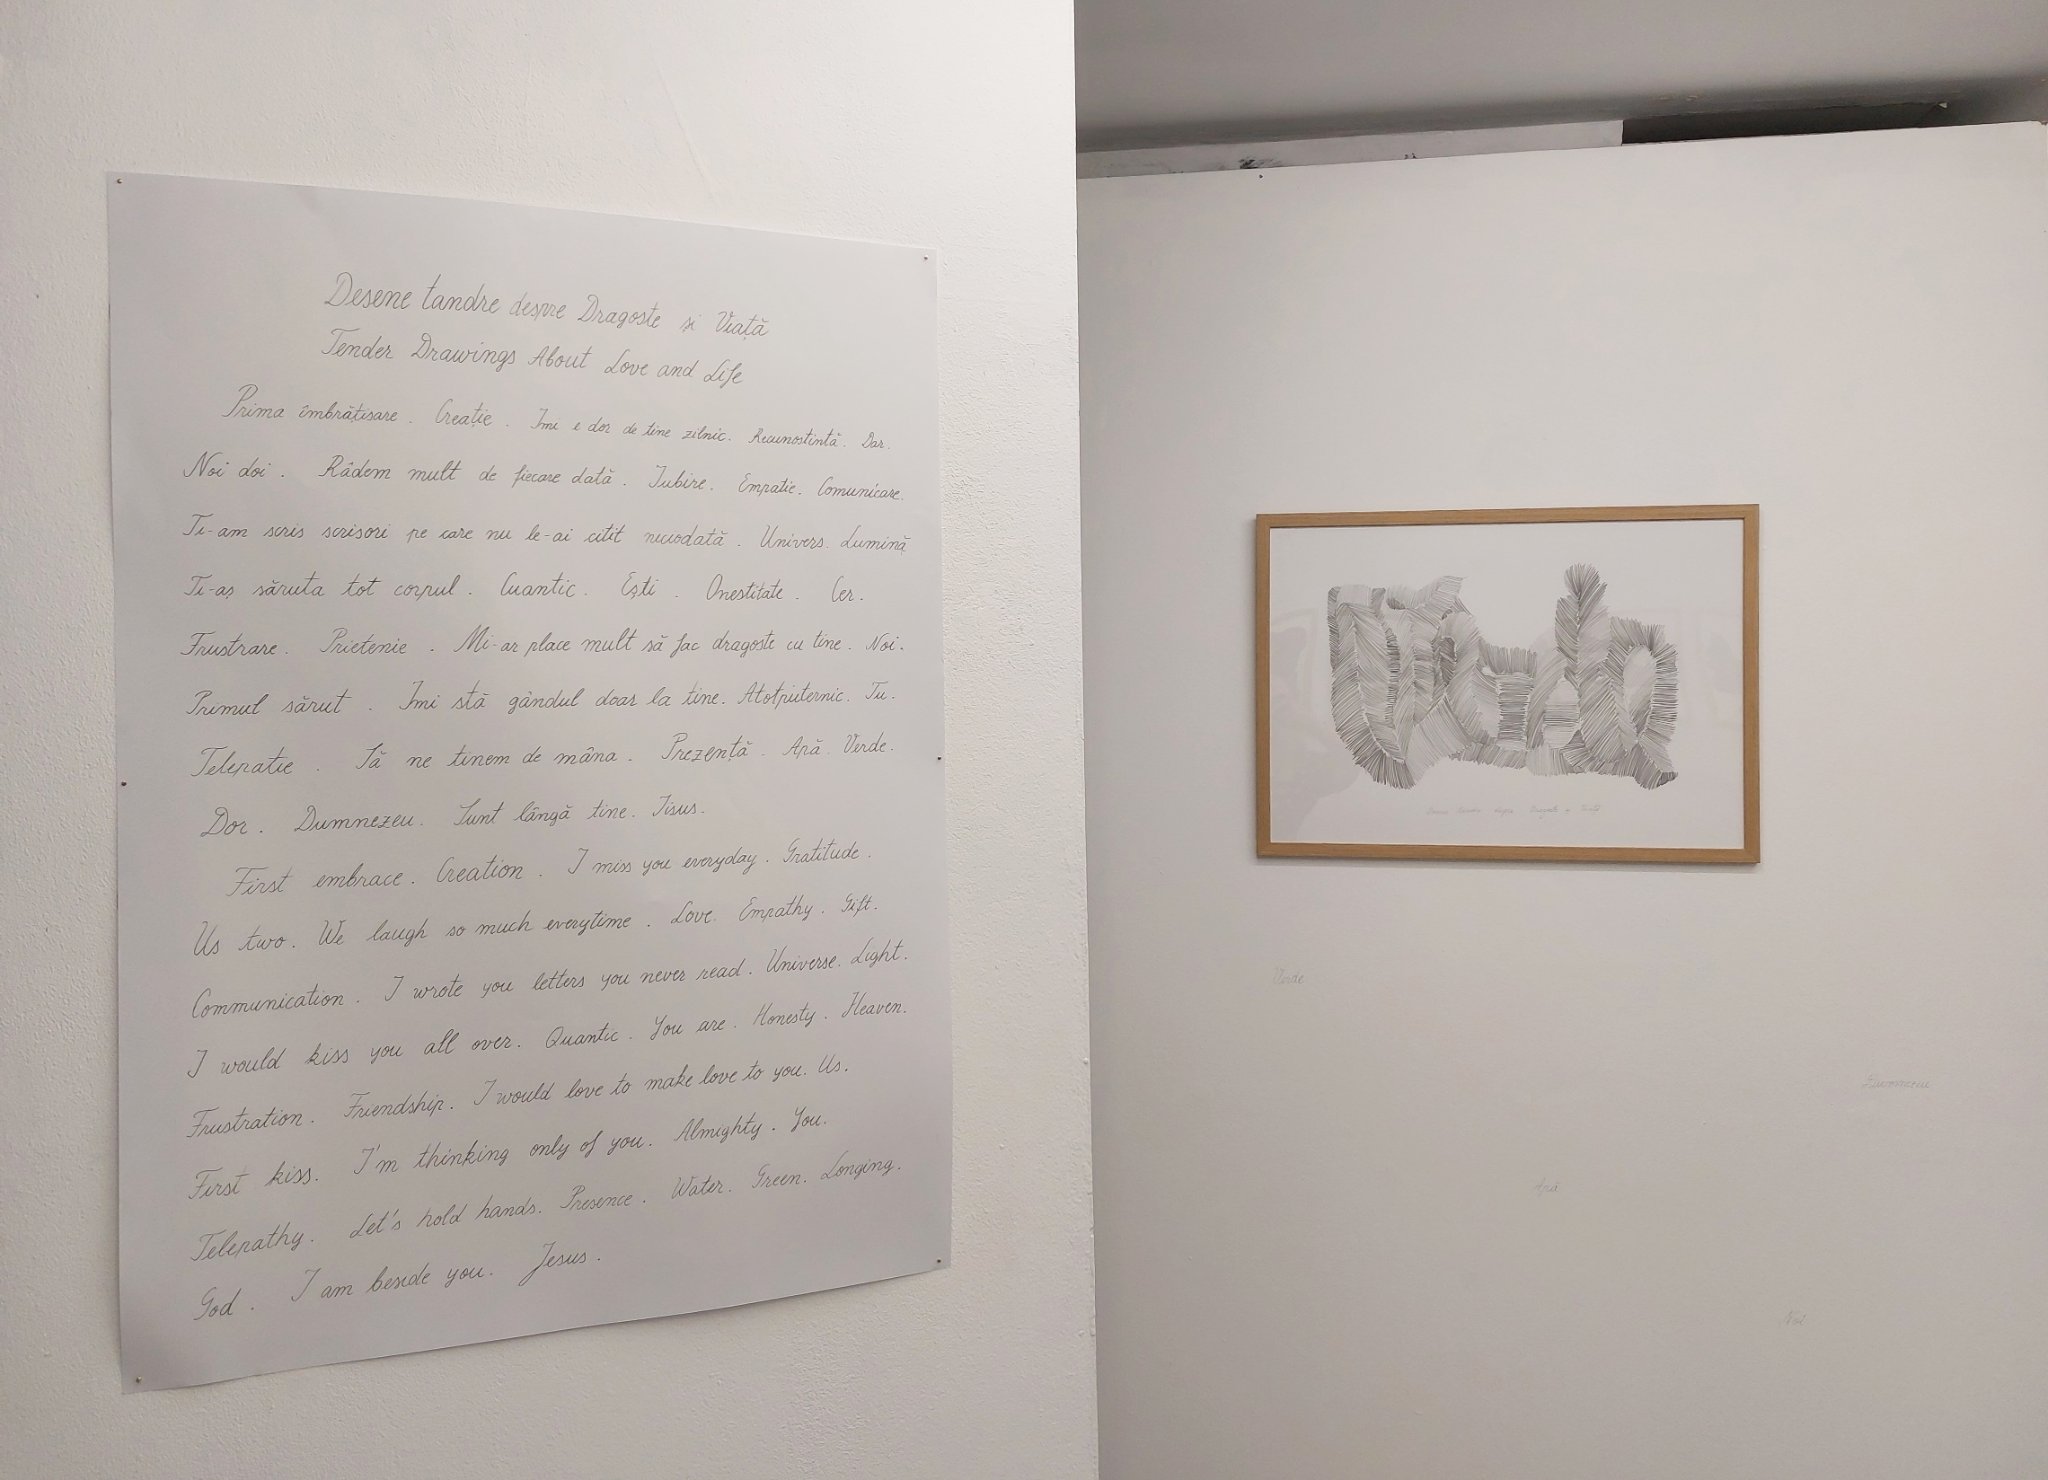 Desene tandre despre Dragoste și Viață
Tender Drawings About Love and Life
Prima îmbrățisare. Creație. Imi e dor de tine zilnic. Recunostintă. Dar.
Noi doi. Râdem mult de fiecare dată. Iubire. Empatie. Comunicare.
Ti-am scris scrisori pe care nu le-ai citit niciodată. Univers. Lumină
Ti-aș săruta tot corpul. Cuantic. Ești. Onestitate. Cer.
Frustrare. Prietenie. Mi-ar place mult să fac dragoste cu tine. Noi.
Primul sărut. Imi stă gândul doar la tine. Atotputernic. Tu.
Telepatie. Să ne tinem de mâna. Prezență. Apă. Verde.
Dor. Dumnezeu. Sunt lângă tine. Iisus.
First embrace. Creation. I miss you everyday. Gratitude.
Us two. We laugh so much everytime. Love. Empathy. Gift.
Communication. I wrote you letters you never read. Universe. Light.
I would kiss you all over. Quantic. You are. Honesty. Heaven.
Frustration. Friendship. I would love to make love to you. Us.
First kiss. I'm thinking only of you. Almighty. You.
Telepathy. Let's hold hands. Presence. Water. Green. Longing.
God. I am beside you. Jesus.
Desene tandre despre Dragoste și Viață
Verde
Dumnezeu
Apă
Noi